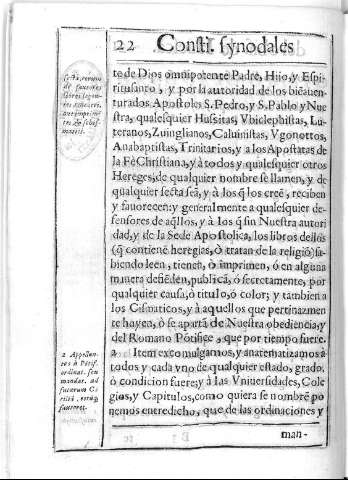 22 Consti. synodales
te de Dios omnipotente Padre, Hijo, y Espi-
ritusanto, y por la autoridad de los biēauen-
turados Apostoles S. Pedro, y S. Pablo y Nue
stra, qualesquier Hussitas, Vbiclephistas, Lu-
teranos, Zuinglianos, Caluinistas, Vgonottos,
Anabaptistas, Trinitarios, y a los Apostatas de
la Fè Christiana, y à todos y qualesquier otros
Hereges, de qualquier nombre se llamen, y de
qualquier secta seā, y à los q̄ los creē, reciben
y fauorecen: y generalmente a qualesquier de-
fensores de aq̄llos, y à los q̄ sin Nuestra autori
dad, y de la Sede Apostolica, los libros dellos
(q̄ contienē heregias, ò tratan de la religiō) sa-
biendo leen, tienen, ò imprimen, ò en alguna
manera defiēden, publica, ò secretamente, por
qualquier causa, ò titulo, ò color; y tambien a
los Cismaticos, y à aquellos que pertinazmen
te huyen, ò se apartā de Nuestra obediencia, y
del Romano Pōtifice, que por tiempo fuere.
2 Item excomulgamos, y anatematizamos à
todos y cada vno de qualquier estado, grado,
ò condicion fuere; y à las Vniuersidades, Cole
gios, y Capitulos, como quiera se nombrē po
nemos entredicho, que de las ordinaciones y
man-
2 Appellan-
tes à Pōtif.
ordinat. seu
mandat. ad
futurum Cō
ciliū, eorūq;
fautores.